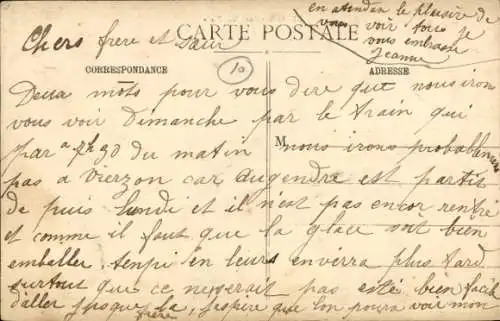 en atendan le plaisire de
vous voir tous je
vous embrasse
Jeanne
CARTE POSTALE
Chers frere et Sœur
10
CORRESPONDANCE
ADRESSE
Deux mots pour vous dire que nous irons
vous voir Dimanche par le train qui
par a 7h30 du matin
M nous irons probablement
pas a Vierzon car augendre est partit
de puis lundi et il n'est pas encor rentré
et comme il faut que la glace soit bien
emballer tenpi en leurs enverra plus tard
surtout que ce neserait pas été bien facil
d'aller jusque la, j'espire que lon poura voir mon
frere